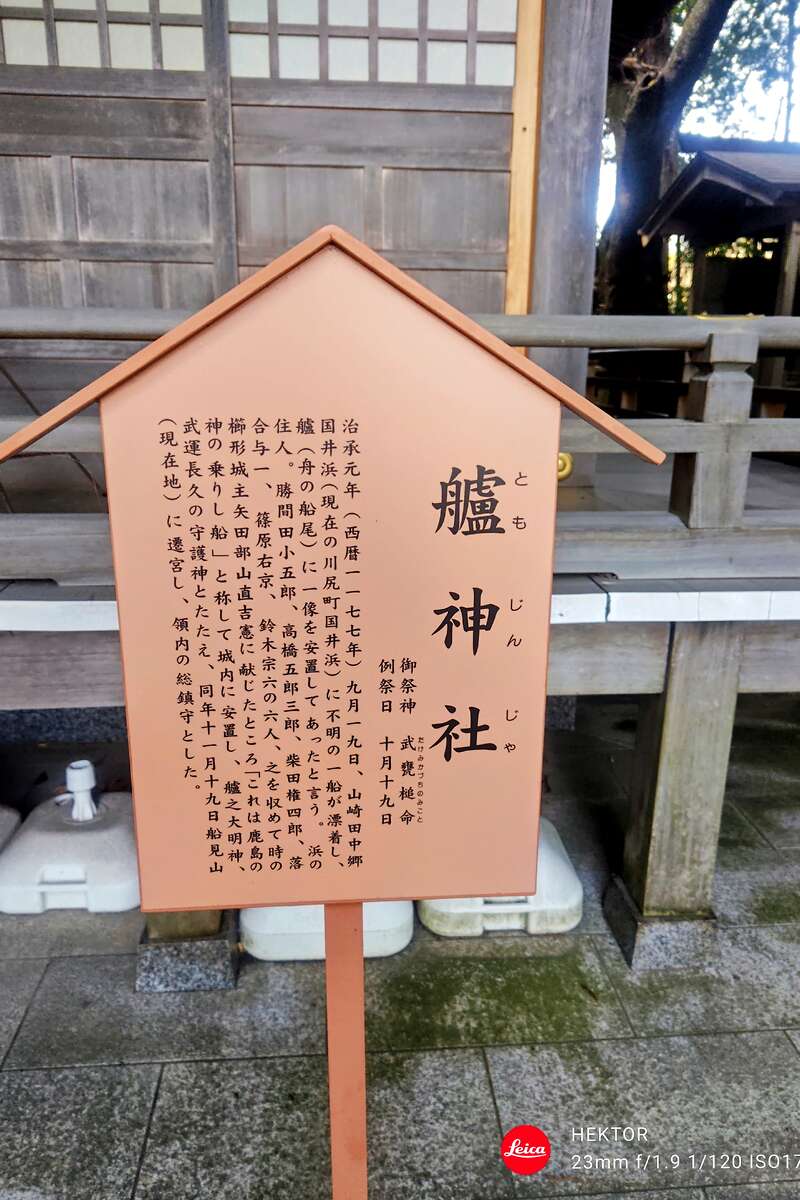 艫神社
ともじんじゃ
御祭神 武甕槌命
たけみかづちのみこと
例祭日 十月十九日
治承元年（西暦一一七七年）九月一九日、山崎田中郷
国井浜（現在の川尻町国井浜）に不明の一船が漂着し、
艫（舟の船尾）に一像を安置してあったと言う。浜の
住人。勝間田小五郎、高橋五郎三郎、柴田権四郎、落
合与一、篠原右京、鈴木宗六の六人、之を収めて時の
櫛形城主矢田部山直吉憲に献じたところ「これは鹿島の
神の乗りし船」と称して城内に安置し、艫之大明神、
武運長久の守護神とたたえ、同年十一月十九日船見山
（現在地）に遷宮し、領内の総鎮守とした。
Leica
HEKTOR
23mm f/1.9 1/120 ISO17